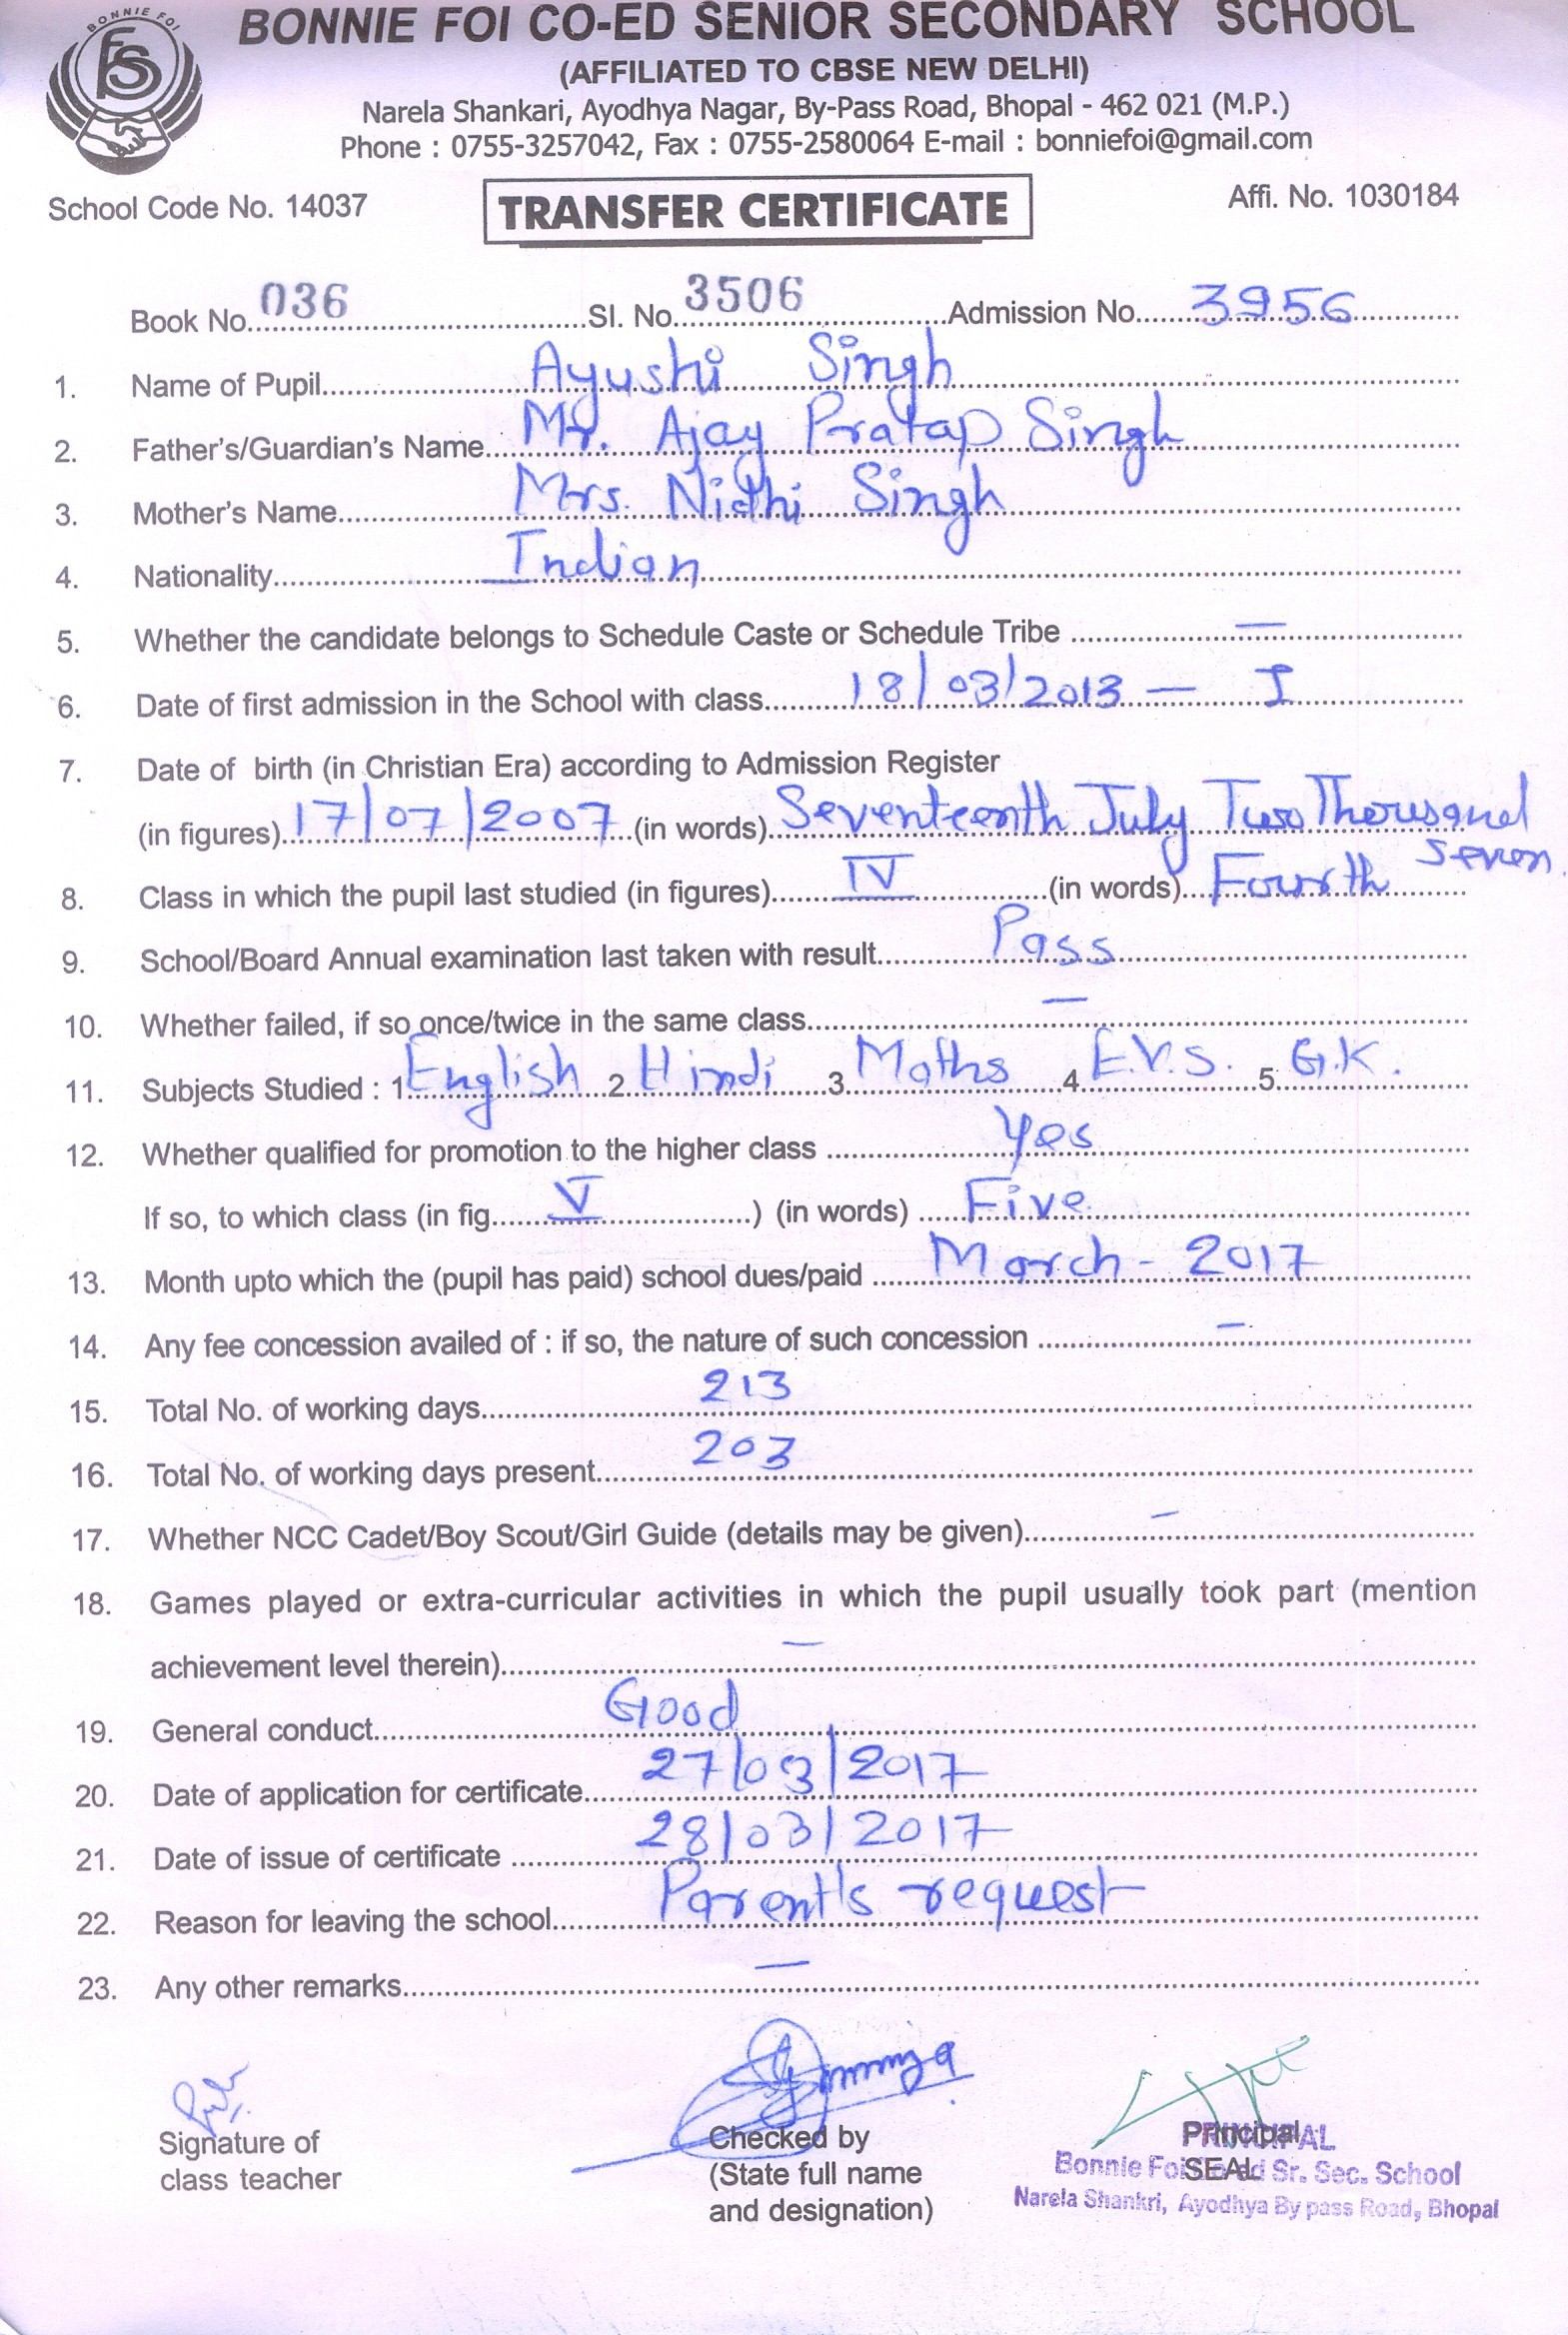 BONNIE FOI
BONNIE FOI CO-ED SENIOR SECONDARY SCHOOL
(AFFILIATED TO CBSE NEW DELHI)
Narela Shankari, Ayodhya Nagar, By-Pass Road, Bhopal - 462 021 (M.P.)
Phone : 0755-3257042, Fax : 0755-2580064 E-mail : bonniefoi@gmail.com
School Code No. 14037 TRANSFER CERTIFICATE Affi. No. 1030184
Book No. 036 Sl. No. 3506 Admission No. 3956
1. Name of Pupil Ayushi Singh
2. Father's/Guardian's Name Mr. Ajay Pratap Singh
3. Mother's Name Mrs. Nidhi Singh
4. Nationality Indian
5. Whether the candidate belongs to Schedule Caste or Schedule Tribe —
6. Date of first admission in the School with class 18/03/2013 — I
7. Date of birth (in Christian Era) according to Admission Register
(in figures) 17/07/2007 (in words) Seventeenth July Two Thousand
Seven
8. Class in which the pupil last studied (in figures) IV (in words) Fourth
9. School/Board Annual examination last taken with result Pass
10. Whether failed, if so once/twice in the same class —
11. Subjects Studied : 1 English 2 Hindi 3 Maths 4 E.V.S. 5 G.K.
12. Whether qualified for promotion to the higher class Yes
If so, to which class (in fig V ) (in words) Five
13. Month upto which the (pupil has paid) school dues/paid March - 2017
14. Any fee concession availed of : if so, the nature of such concession —
15. Total No. of working days 213
16. Total No. of working days present 203
17. Whether NCC Cadet/Boy Scout/Girl Guide (details may be given) —
18. Games played or extra-curricular activities in which the pupil usually took part (mention
achievement level therein) —
19. General conduct Good
20. Date of application for certificate 27/03/2017
21. Date of issue of certificate 28/03/2017
22. Reason for leaving the school Parent's request
23. Any other remarks —
Signature of
class teacher
Checked by
(State full name
and designation)
Principal
SEAL
PRINCIPAL
Bonnie Foi Co-ed Sr. Sec. School
Narela Shankri, Ayodhya By pass Road, Bhopal